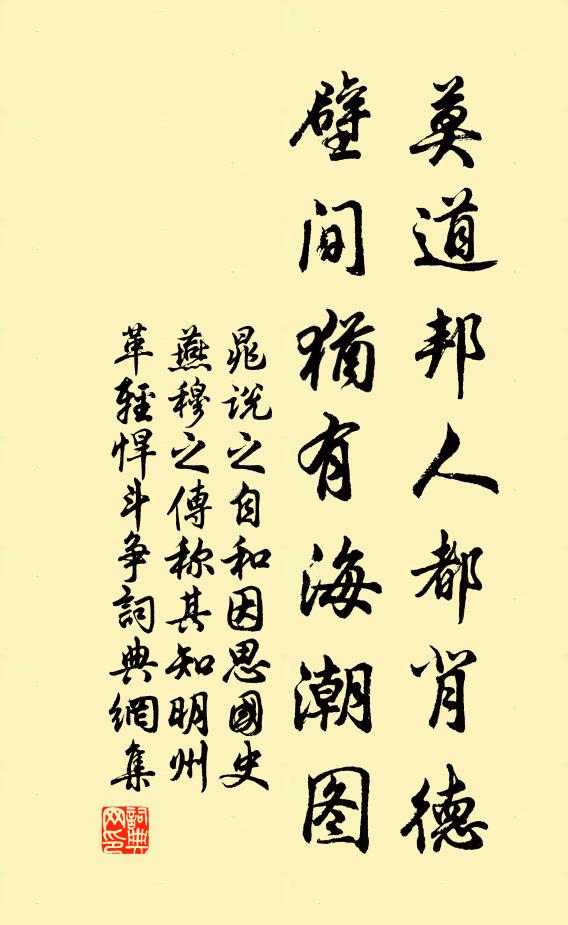 莫道邦人都背德
壁间猶有海潮图
晁说之自和因思國史
燕穆之傳称其知明州
革輕悍斗争詞典網集
詞典
网印